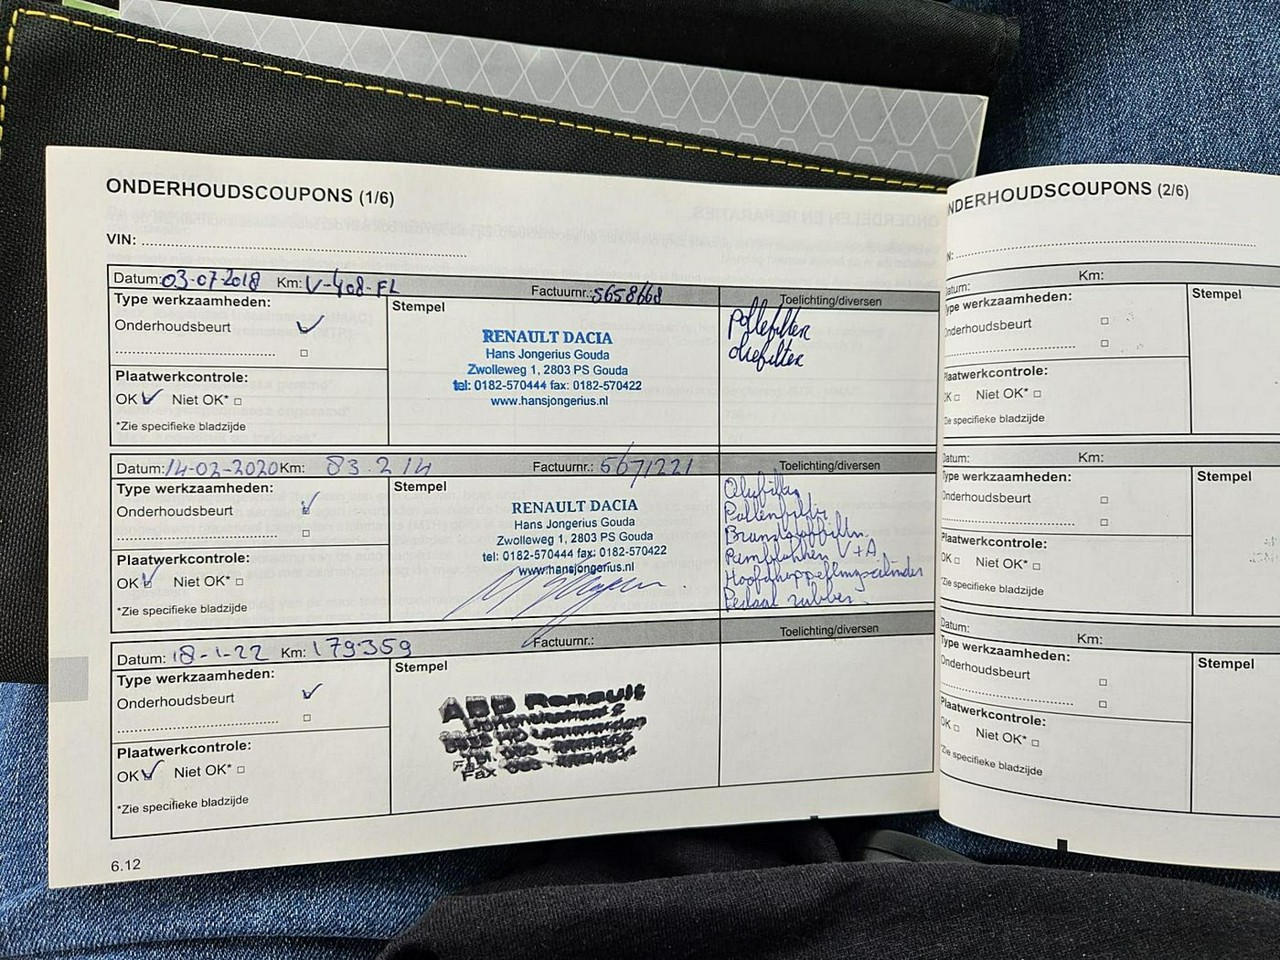 ONDERHOUDSCOUPONS (1/6)
VIN:
Datum: 03-07-2018 Km: V-408-FL Factuurnr.: 5658668
Type werkzaamheden:
Onderhoudsbeurt
Plaatwerkcontrole:
OK Niet OK*
*Zie specifieke bladzijde
Stempel
RENAULT DACIA
Hans Jongerius Gouda
Zwolleweg 1, 2803 PS Gouda
tel: 0182-570444 fax: 0182-570422
www.hansjongerius.nl
Toelichting/diversen
oliefilter
Datum: 14-02-2020 Km: 83.214 Factuurnr.: 5671221
Type werkzaamheden:
Onderhoudsbeurt
Plaatwerkcontrole:
OK Niet OK*
*Zie specifieke bladzijde
Stempel
RENAULT DACIA
Hans Jongerius Gouda
Zwolleweg 1, 2803 PS Gouda
tel: 0182-570444 fax: 0182-570422
www.hansjongerius.nl
Toelichting/diversen
Pollenfilter
Brandstoffilter
Remblokken V+A
Pedaal rubber
Datum: 18-1-22 Km: 179359 Factuurnr.:
Type werkzaamheden:
Onderhoudsbeurt
Plaatwerkcontrole:
OK Niet OK*
*Zie specifieke bladzijde
Stempel
ABD Renault
Fax
Toelichting/diversen
6.12
NDERHOUDSCOUPONS (2/6)
N:
Datum: Km:
Type werkzaamheden:
Onderhoudsbeurt
Plaatwerkcontrole:
OK Niet OK*
*Zie specifieke bladzijde
Stempel
Datum: Km:
Type werkzaamheden:
Onderhoudsbeurt
Plaatwerkcontrole:
OK Niet OK*
*Zie specifieke bladzijde
Stempel
Datum: Km:
Type werkzaamheden:
Onderhoudsbeurt
Plaatwerkcontrole:
OK Niet OK*
*Zie specifieke bladzijde
Stempel